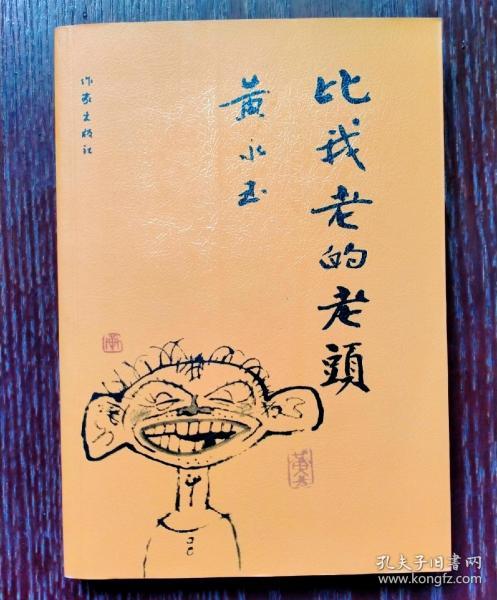 比我老的老頭
黄永玉
作家出版社
孔夫子旧书网
www.kongfz.com